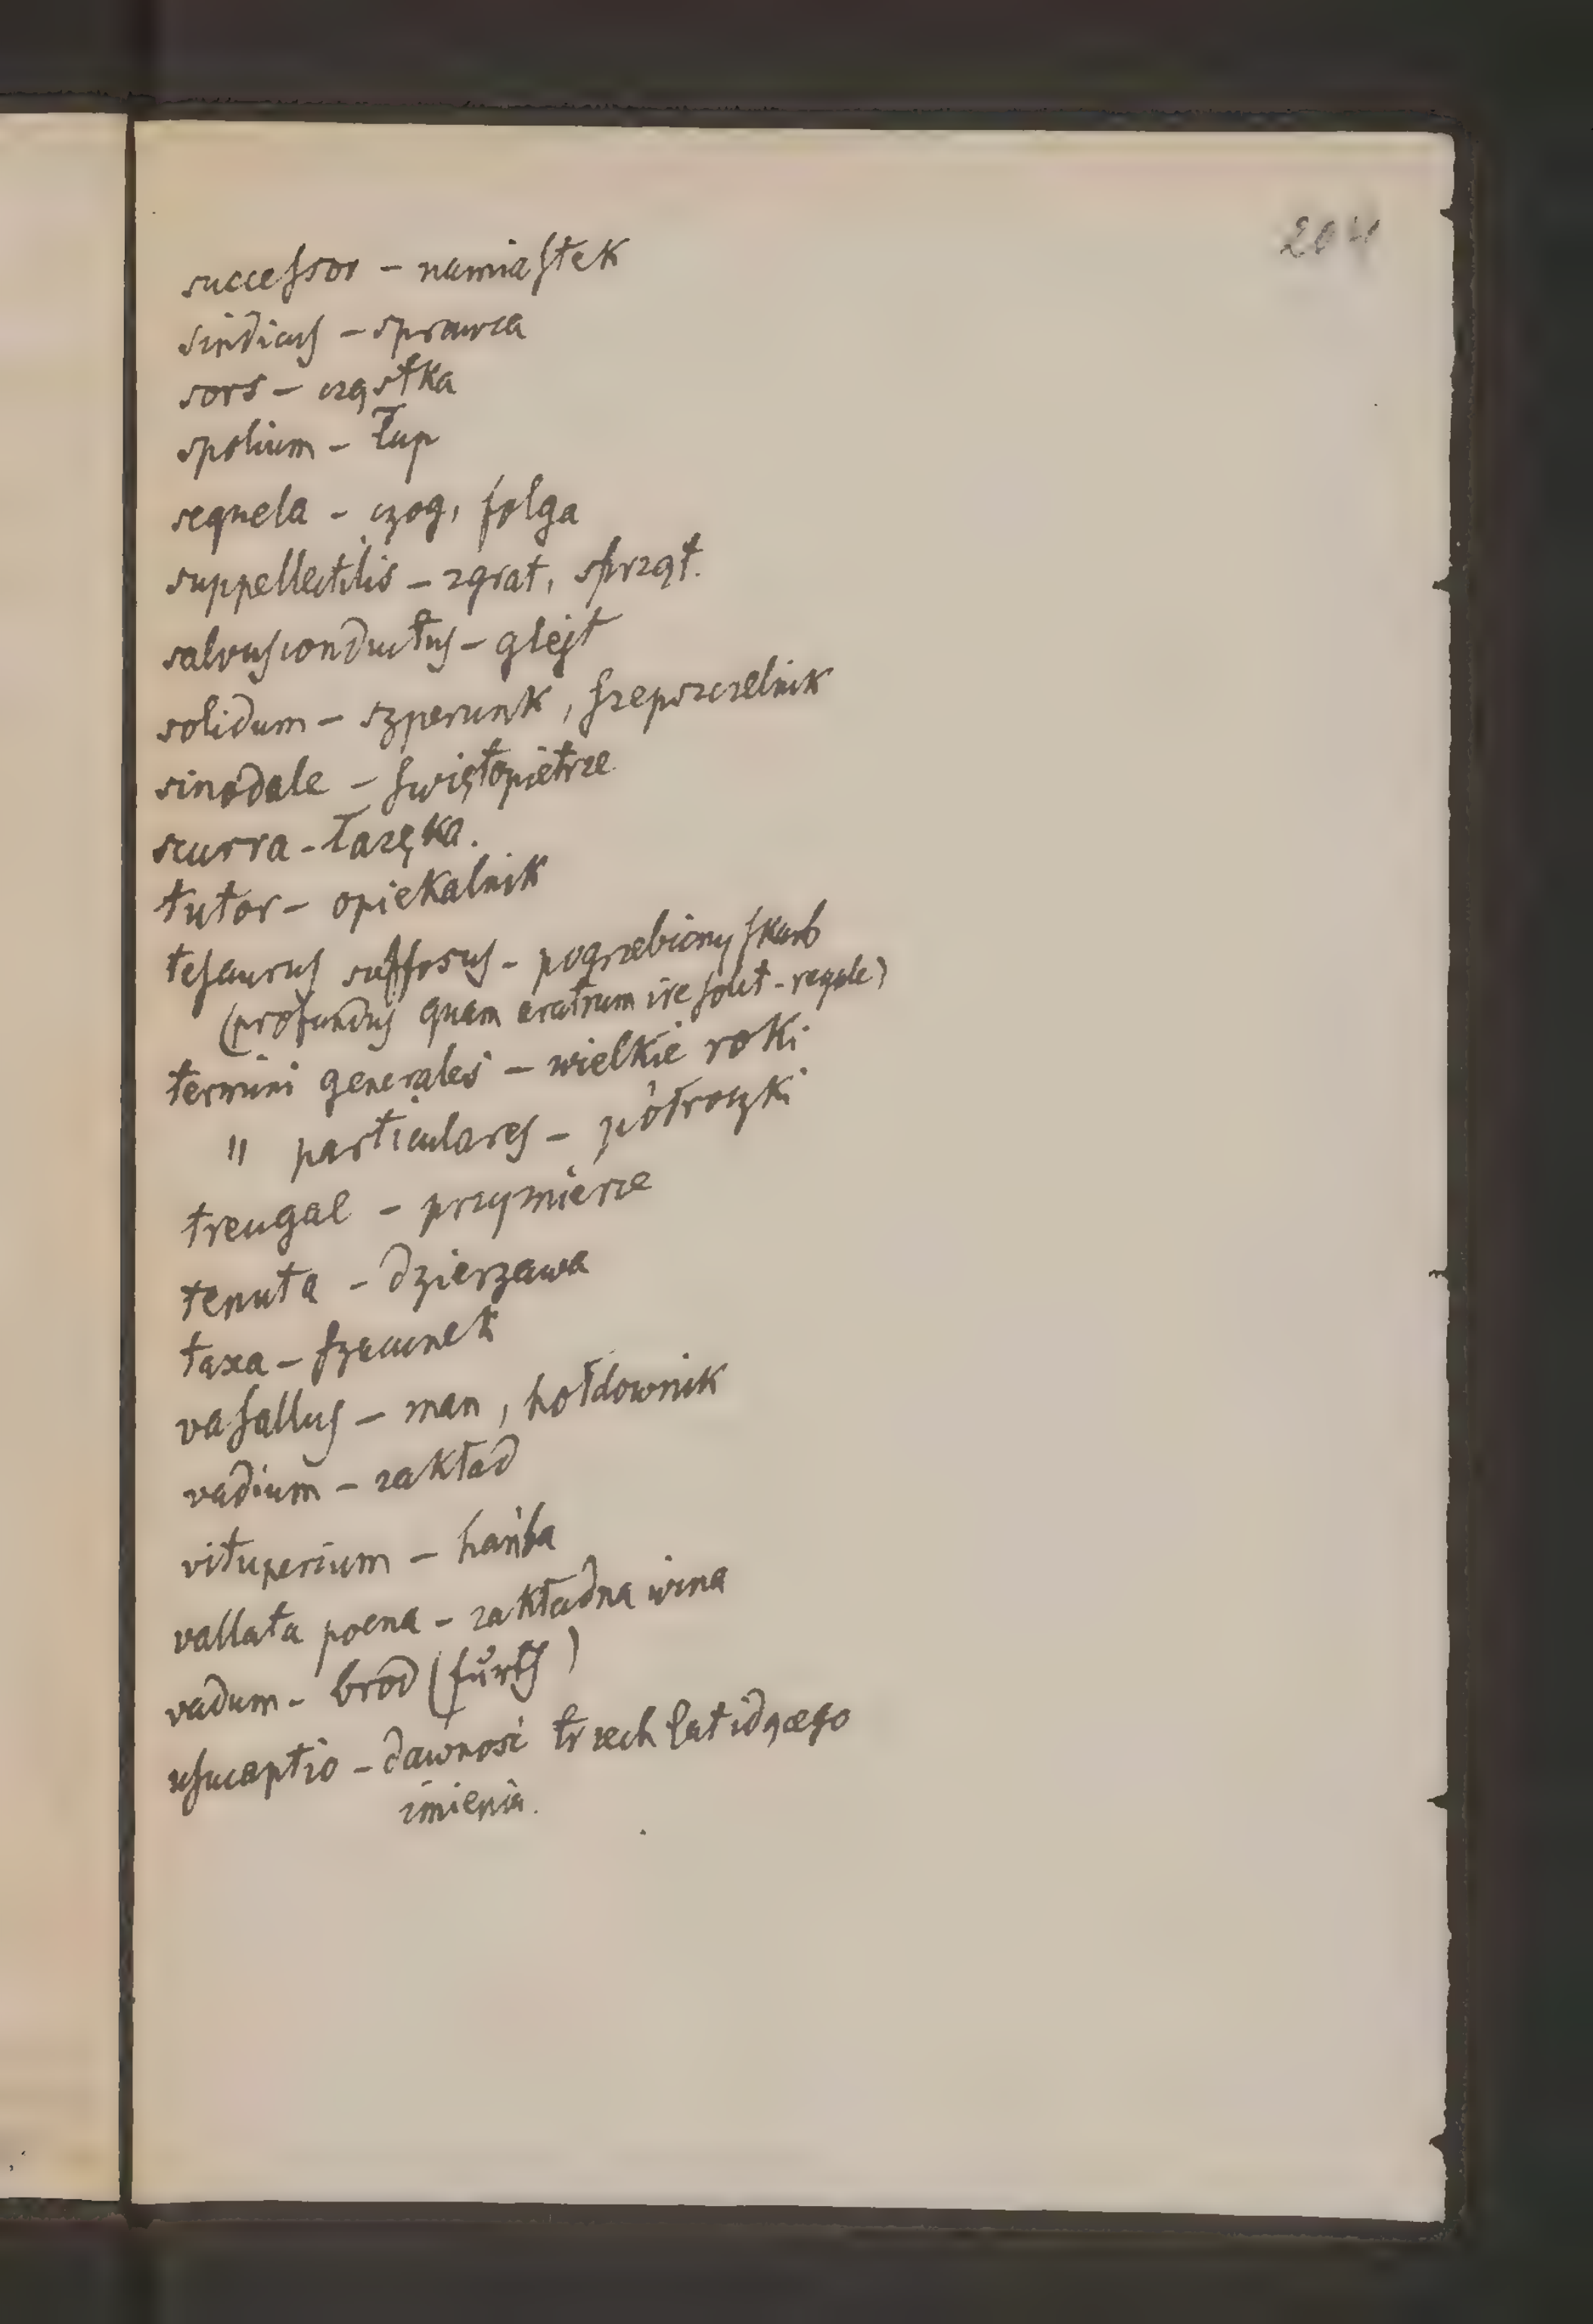 204
succeſsor – namiaſtek
sindicuſ – sprawca
sors – cząstka
spolium – Łup
sequela – czog, folga
suppellectilis – zgrat, sprząt.
salvuſconductuſ – glejt
solidum – szperunk, ſzepszczelnik
sinodale – ſwiętopietrze
scurra – Łazęka.
tutor – opiekalnik
teſauruſ suffosuſ – pogrzebiony ſkarb
(profunduſ quam aratrum ire ſolet – regale)
termini generales – wielkie roki
" particulareſ – półroczki
treugal – przymierze
tenuta – dzierzawa
taxa – ſzacunek
vaſalluſ – man, hołdownik
vadium – zakład
vituperium – hańba
vallata poena – zakładna wina
vadum – brod (fůrth)
uſucaptio – dawnosć trzech lat idącego
imienia.